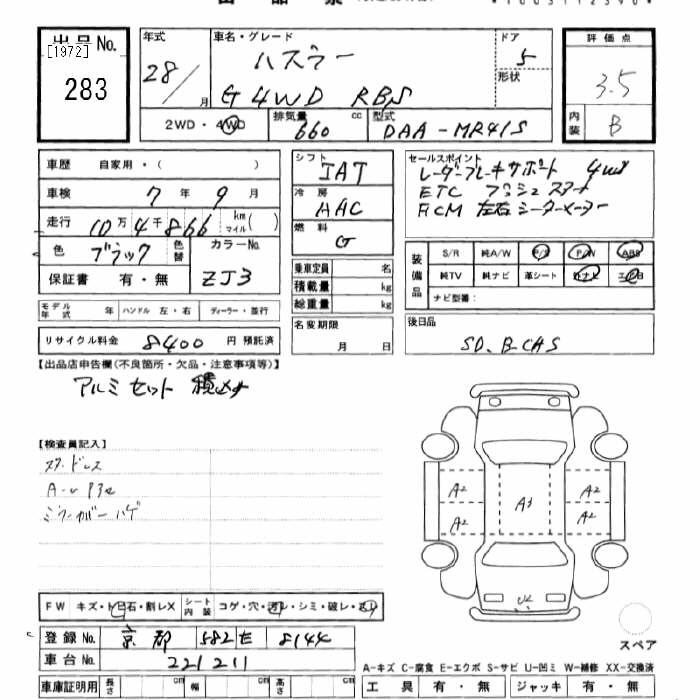 出品票
出品No.
[1972]
283
年式
28/月
車名・グレード
ハスラー
G 4WD RBS
ドア
5
形状
2WD・4WD
排気量 660 cc
型式 DAA-MR41S
評価点
3.5
内装
B
車歴 自家用・( )
車検 7年9月
走行 10万4千866 km マイル( )
色 ブラック 色替
カラーNo. ZJ3
保証書 有・無
モデル年式 年 ハンドル 左・右 ディーラー・並行
リサイクル料金 8400 円 預託済
シフト IAT
冷房 AAC
燃料 G
乗車定員 名
積載量 kg
総重量 kg
名変期限
月 日
セールスポイント
レーダーブレーキサポート 4WD
ETC プッシュスタート
FCM 左右シートヒーター
装備品
S/R 純A/W P/S P/W ABS
純TV 純ナビ 革シート 外ナビ エアB
ナビ型番:
後日品
SD、B-CAS
【出品店申告欄(不良箇所・欠品・注意事項等)】
アルミセット 積込み
【検査員記入】
スタッドレス
ミラーカバーハゲ
A2 A2
A3
A2 A2
FW キズ・トビ石・割レX
シート内装 コゲ・穴・汚レ・シミ・破レ・スレ
登録No. 京都 582 え 8144
車台No. 221211
車庫証明用 長さ cm 幅 cm 高さ cm
スペア
A-キズ C-腐食 E-エクボ S-サビ U-凹ミ W-補修 XX-交換済
工具 有・無 ジャッキ 有・無